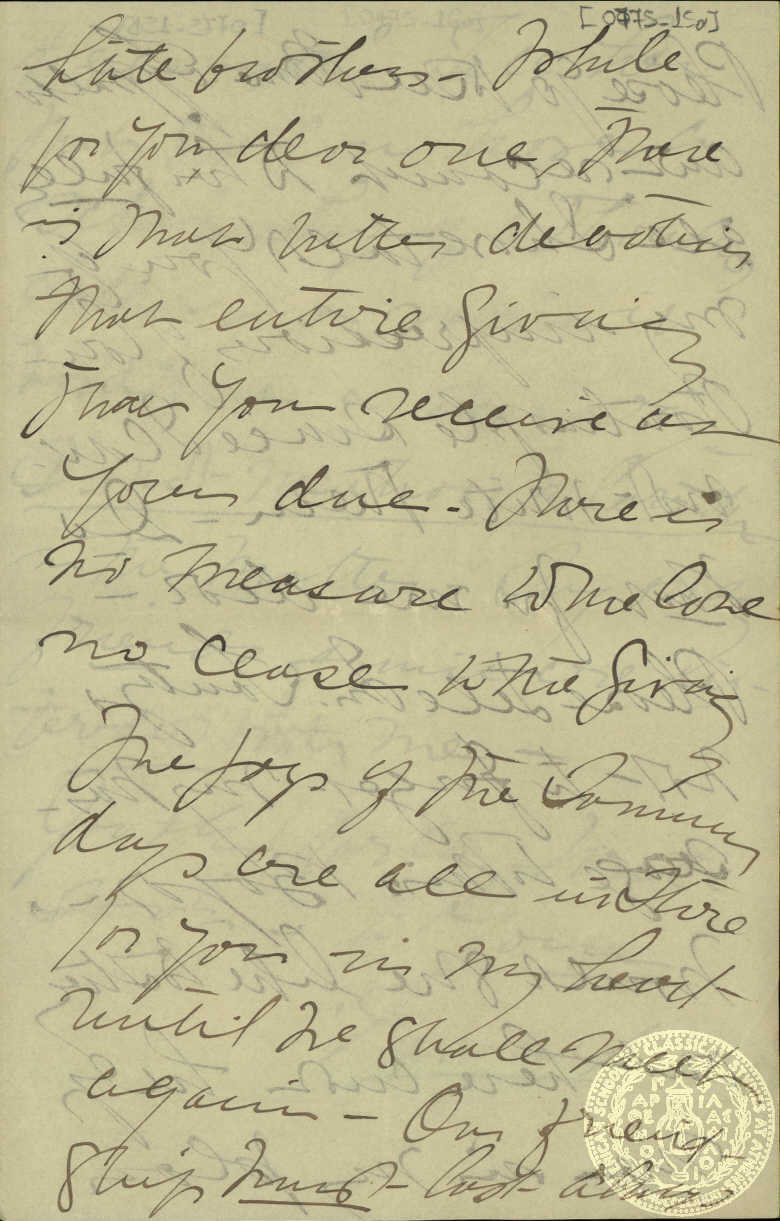 little brothers - While
for you, dear one, there
is that utter devotion
that entire giving
that you receive as
your due - There is
no measure to the love
no cease to the giving
The joys of the Common
days are all in store
for you in my heart -
until we shall meet
again - Our friend-
ship must last always